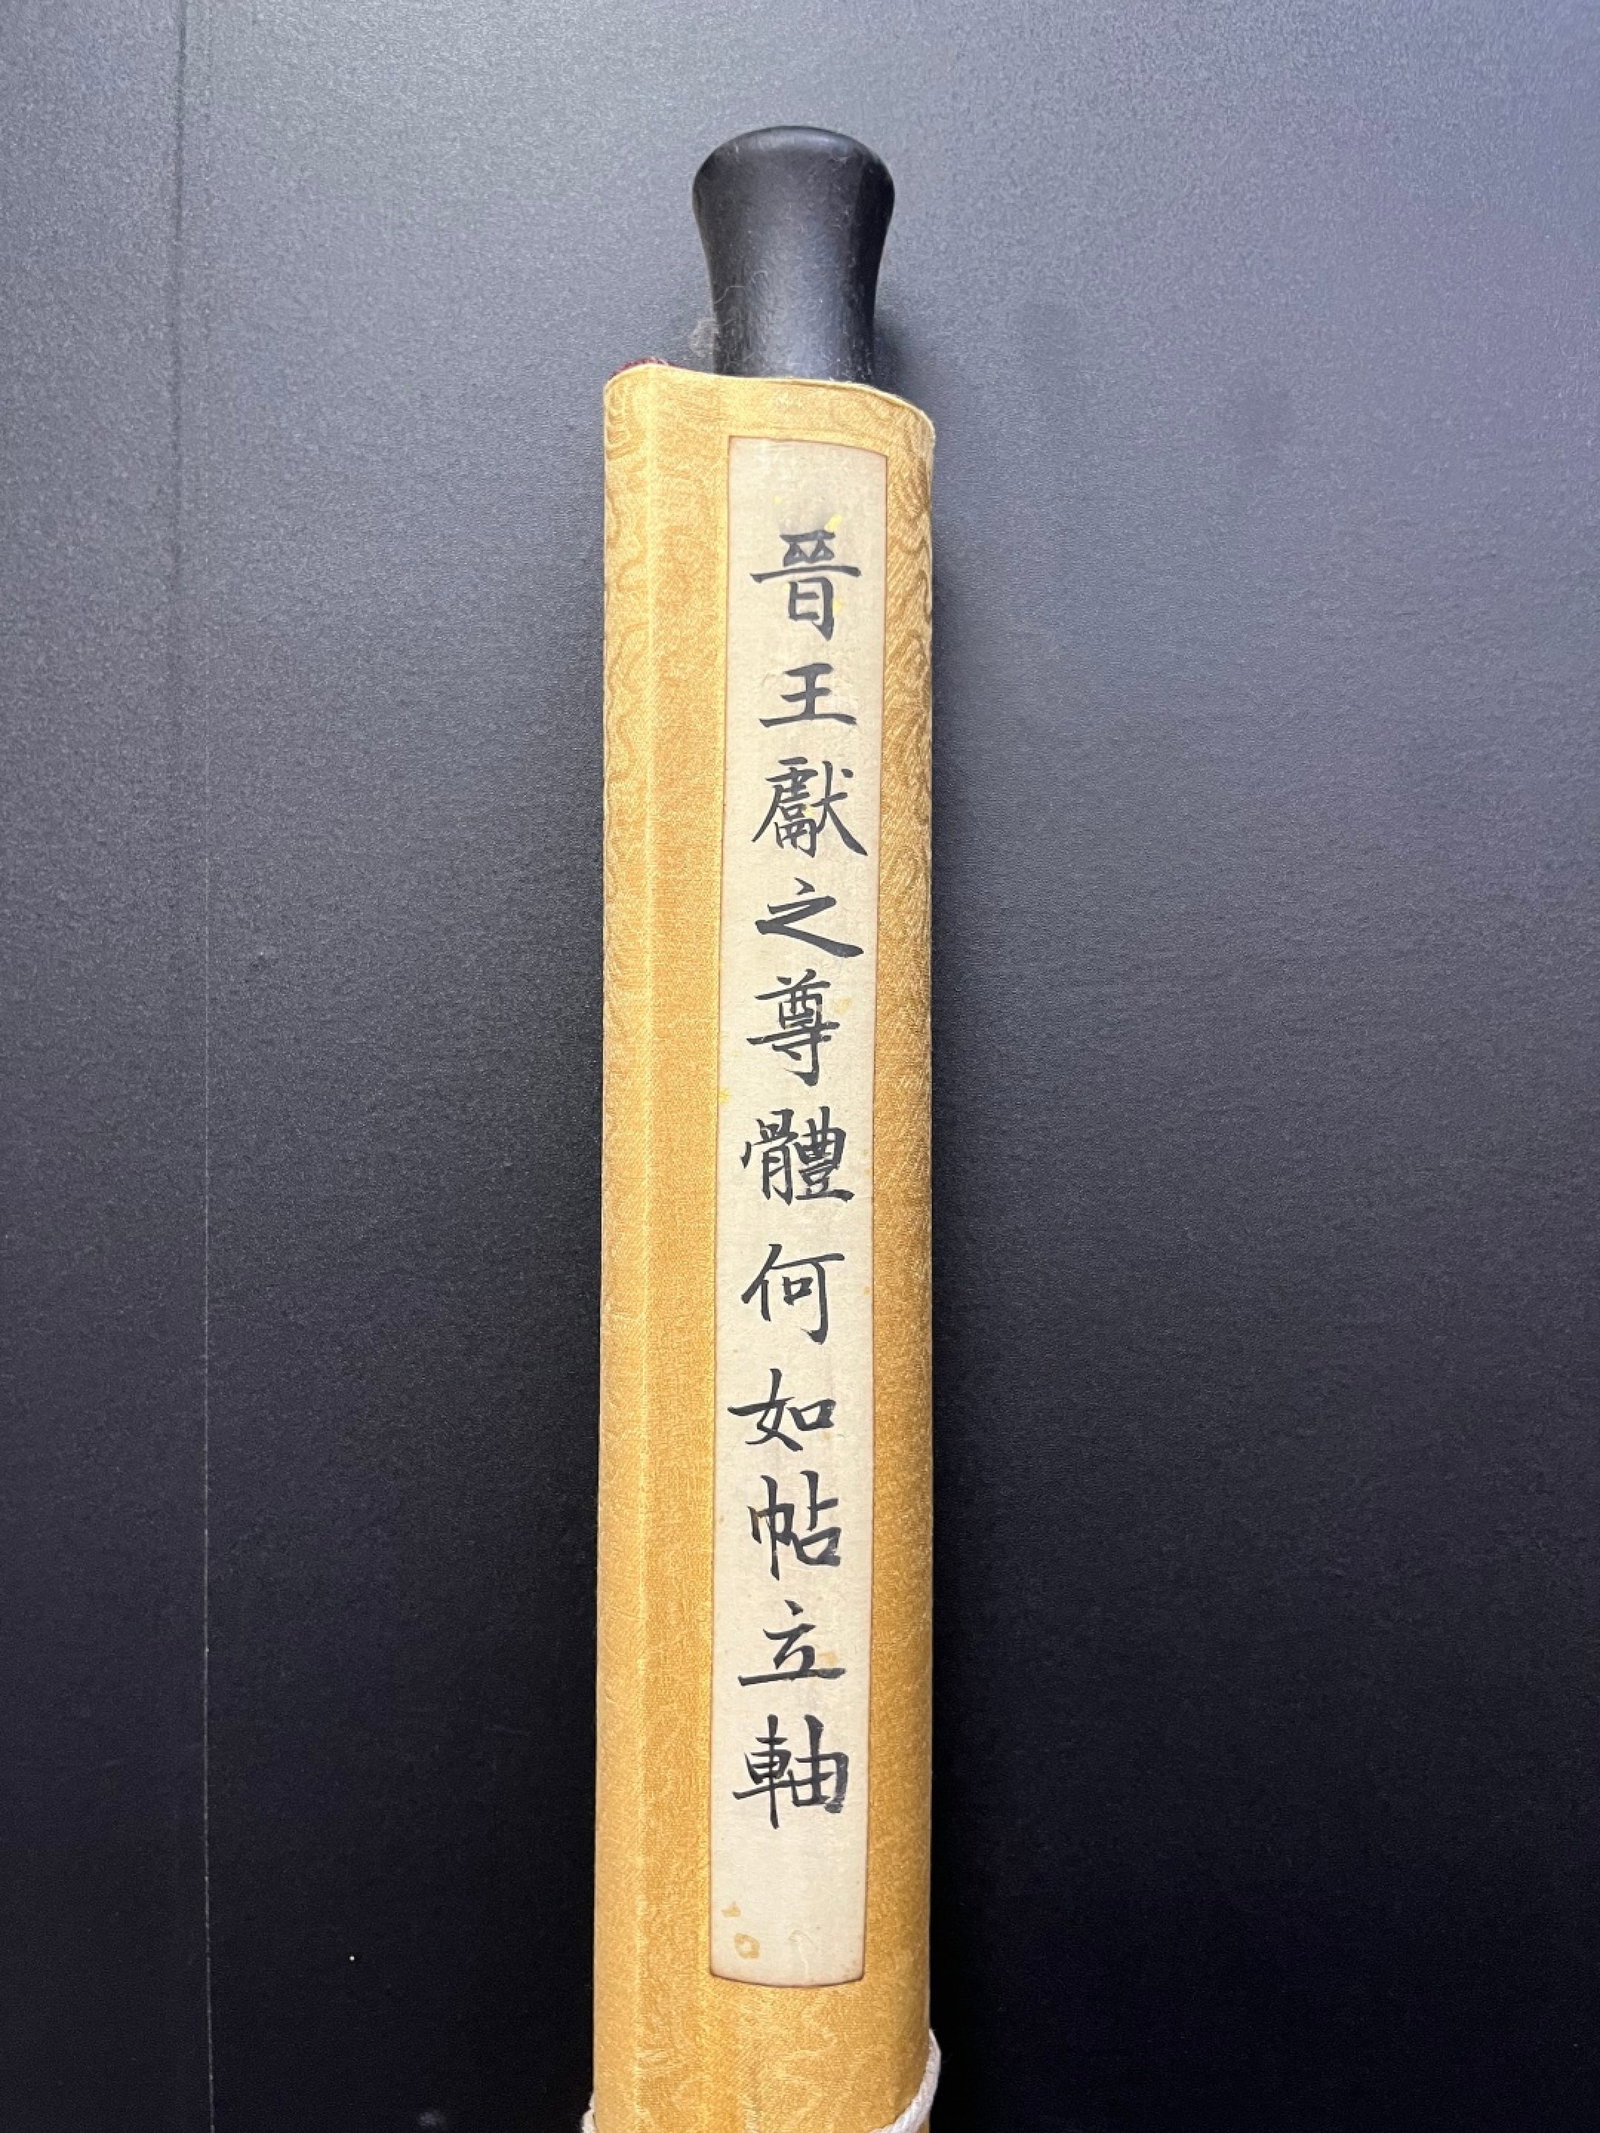 晉王獻之尊體何如帖立軸